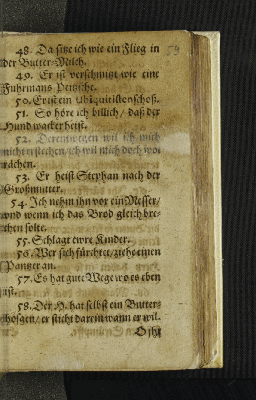 48. Da sitze ich wie ein Flieg in
der Butter-Milch.
49. Er ist verschmitzt wie eine
Fuhrmans Peitsche.
50. Er ist ein
51. So höre ich billich / daß der
Hund wacker heist.
52. Derentwegen wil ich mich
nicht erstechen / ich wil mich doch wol
rächen.
53. Er heist Stephan nach der
Großmutter.
54. Ich nehm ihn vor ein Messer /
vnd wenn ich das Brod gleich bre-
chen solte.
55. Schlagt ewre Kinder.
56. Wer sich fürchtet / ziehe einen
Pantzer an.
57. Es hat gute Wege wo es eben
ist.
58. Der H. hat selbst ein Butter-
hosgen / er sticht darein wann er wil.